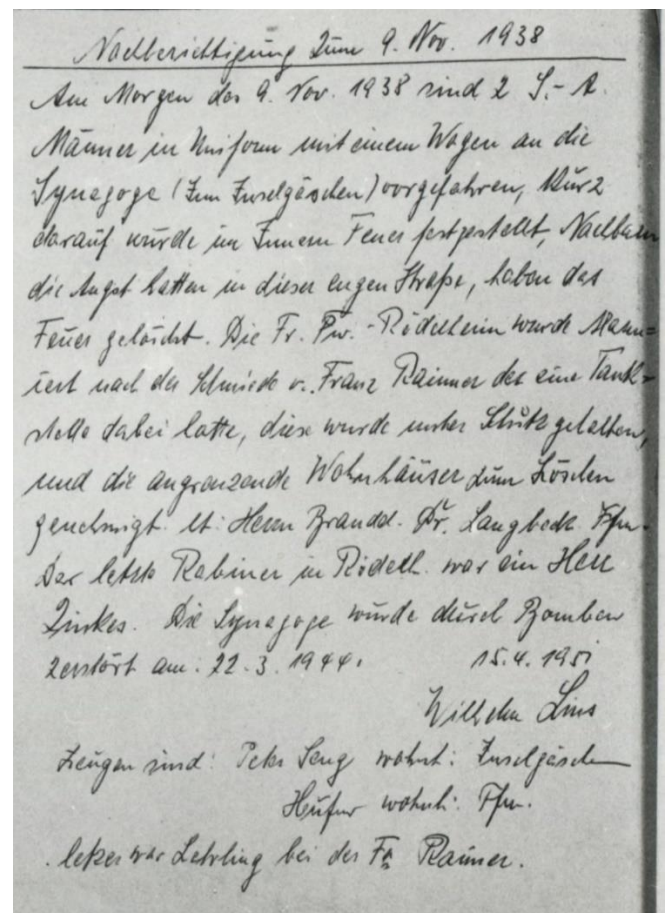 Nachberichtigung zum 9. Nov. 1938
Am Morgen des 9. Nov. 1938 sind 2 S.-A.
Männer in Uniform mit einem Wagen an die
Synagoge (Zum Inselgäschen) vorgefahren, Kurz
darauf wurde im Innern Feuer festgestellt, Nachbarn
die Angst hatten in dieser engen Straße, haben das
Feuer gelöscht. Die Fr. Fw.-Rödelheim wurde
nach der Schmiede v. Franz der eine Tank=
stelle dabei hatte, diese wurde unter Schutz gehalten,
und die angrenzende Wohnhäuser zum Löschen
genehmigt. lt. Herrn Brandd. Dr. Langbeck Ffm.
Der letzte Rabiner in Rödelh. war ein Herr
Die Synagoge wurde durch Bomben
zerstört am: 22.3.1944. 15.4.1951
Wilhelm Lins
Zeugen sind: Peter Seng wohnt: Inselgäschen
wohnh: Ffm.
letzer war Lehrling bei der Fa